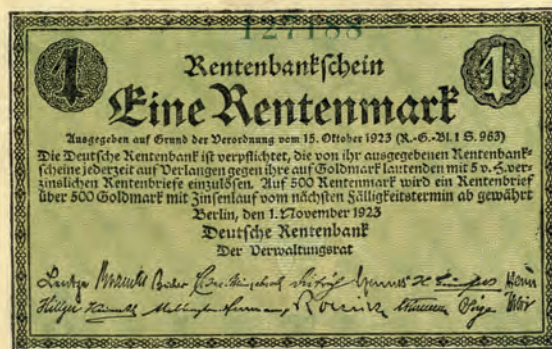 127188
1 Rentenbankschein 1
Eine Rentenmark
Ausgegeben auf Grund der Verordnung vom 15. Oktober 1923 (R.-G.-Bl. I S. 963)
Die Deutsche Rentenbank ist verpflichtet, die von ihr ausgegebenen Rentenbank-
scheine jederzeit auf Verlangen gegen ihre auf Goldmark lautenden mit 5 v. H. ver-
zinslichen Rentenbriefe einzulösen. Auf 500 Rentenmark wird ein Rentenbrief
über 500 Goldmark mit Zinsenlauf vom nächsten Fälligkeitstermin ab gewährt
Berlin, den 1. November 1923
Deutsche Rentenbank
Der Verwaltungsrat